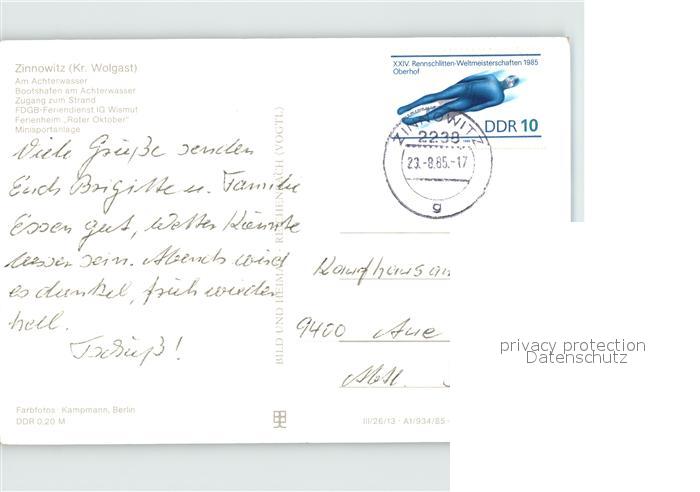 Zinnowitz (Kr. Wolgast)
Am Achterwasser
Bootshafen am Achterwasser
Zugang zum Strand
FDGB-Feriendienst IG Wismut
Ferienheim „Roter Oktober"
Minisportanlage
Viele Grüße senden
Euch Brigitte u. Familie
Essen gut, Wetter könnte
besser sein. Abends wird
es dunkel, früh wieder
hell.
Tschüß!
Farbfotos: Kampmann, Berlin
DDR 0,20 M
BILD UND HEIMAT REICHENBACH (VOGTL)
XXIV. Rennschlitten-Weltmeisterschaften 1985
Oberhof
DDR 10
ZINNOWITZ
2238
23.-8.85.-17
g
9400 Aue
Abtl.
III/26/13 · A1/934/85
privacy protection
Datenschutz